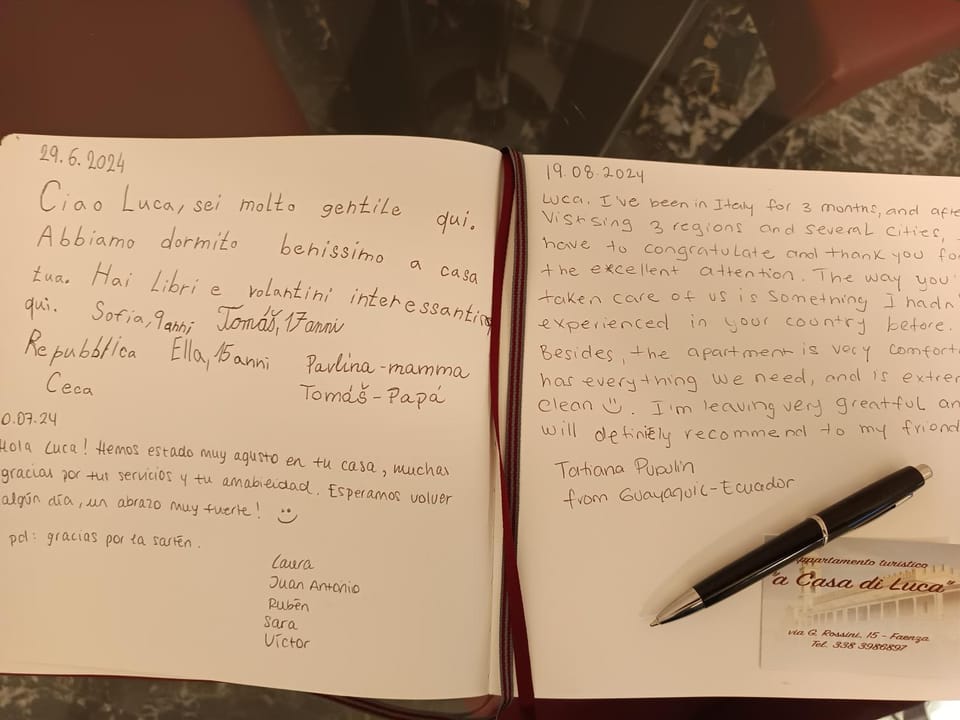 29.6.2024
Ciao Luca, sei molto gentile qui.
Abbiamo dormito benissimo a casa
tua. Hai libri e volantini interessanti
qui. Sofia, 9 anni Tomáš, 17 anni
Repubblica Ella, 15 anni Pavlína - mamma
Ceca Tomáš - Papá
0.07.24
Hola Luca! Hemos estado muy agusto en tu casa, muchas
gracias por tus servicios y tu amabilidad. Esperamos volver
algún día, un abrazo muy fuerte!
pd: gracias por la sartén.
Laura
Juan Antonio
Rubén
Sara
Víctor
19.08.2024
Luca. I've been in Italy for 3 months, and afte
Visitsing 3 regions and several cities,
have to congratulate and thank you fo
the excellent attention. The way you'
taken care of us is something I hadn'
experienced in your country before.
Besides, the apartment is very comfort
has everything we need, and is extre
clean. I'm leaving very greatful an
will definiely recommend to my friend
Tatiana Pupulin
from Guayaquil-Ecuador
Appartamento turistico
"a Casa di Luca"
via G. Rossini, 15 - Faenza
Tel. 338 3986897